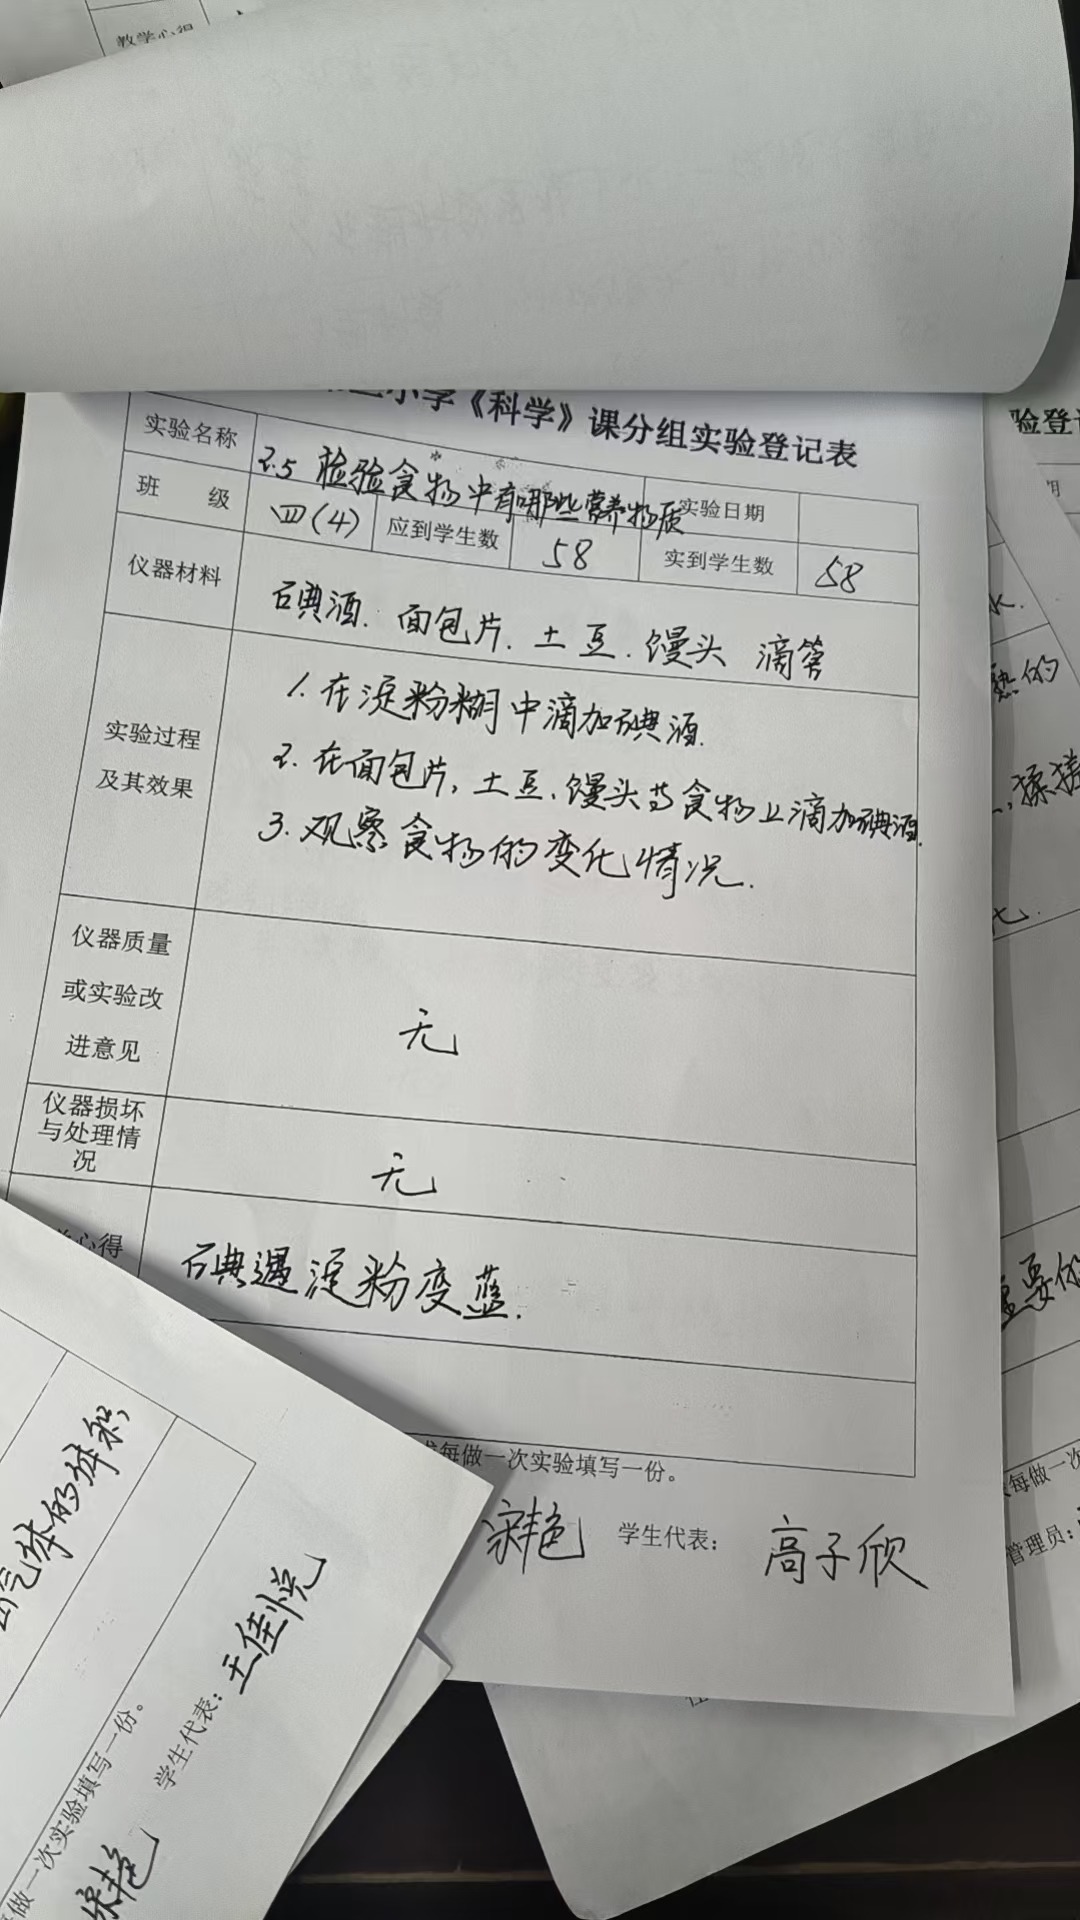 教学心得
小学《科学》课分组实验登记表
实验名称 2.5 检验食物中有哪些营养物质 实验日期
班 级 四(4) 应到学生数 58 实到学生数 58
仪器材料 碘酒. 面包片. 土豆. 馒头 滴管
实验过程及其效果
1. 在淀粉糊中滴加碘酒.
2. 在面包片, 土豆、馒头等食物上滴加碘酒.
3. 观察食物的变化情况.
仪器质量
或实验改
进意见
无
仪器损坏
与处理情
况
无
心得
碘遇淀粉变蓝.
每做一次实验填写一份。
学生代表: 高子欣
气体的体积
做一次实验填写一份。
学生代表: 王佳悦
验登记
热的
揉搓
重要的
每做一次
管理员: